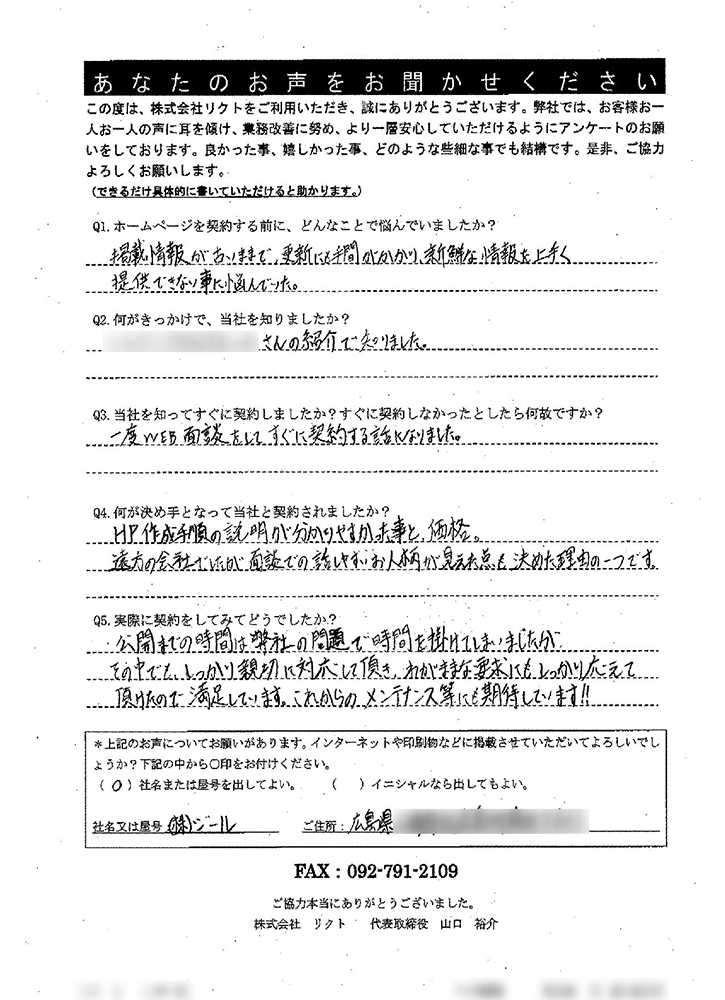 あなたのお声をお聞かせください
この度は、株式会社リクトをご利用いただき、誠にありがとうございます。弊社では、お客様お一
人お一人の声に耳を傾け、業務改善に努め、より一層安心していただけるようにアンケートのお願
いをしております。良かった事、嬉しかった事、どのような些細な事でも結構です。是非、ご協力
よろしくお願いします。
(できるだけ具体的に書いていただけると助かります。)
Q1.ホームページを契約する前に、どんなことで悩んでいましたか？
掲載情報が古いままで、更新にも手間がかかり、新鮮な情報を上手く
提供できない事に悩んでいった。
Q2.何がきっかけで、当社を知りましたか？
さんの紹介で知りました。
Q3.当社を知ってすぐに契約しましたか？すぐに契約しなかったとしたら何故ですか？
一度WEB面談をしてすぐに契約する話になりました。
Q4.何が決め手となって当社と契約されましたか？
HP作成手順の説明が分かりやすかった事と、価格。
遠方の会社でしたが面談での話しやすいお人柄が見えた点も決めた理由の一つです。
Q5.実際に契約をしてみてどうでしたか？
公開までの時間は弊社の問題で時間を掛けてしまいましたが
その中でも、しっかり親切に対応して頂き、わがままな要求にもしっかり応えて
頂けたので満足しています。これからのメンテナンス等にも期待しています!!
＊上記のお声についてお願いがあります。インターネットや印刷物などに掲載させていただいてよろしいでし
ょうか？下記の中から〇印をお付けください。
（〇）社名または屋号を出してよい。 （ ）イニシャルなら出してもよい。
社名又は屋号 ㈱ジール ご住所：広島県
FAX：092-791-2109
ご協力本当にありがとうございました。
株式会社 リクト 代表取締役 山口 裕介